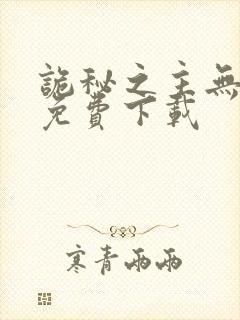 詭秘之主無
免費下載
寒青雨雨